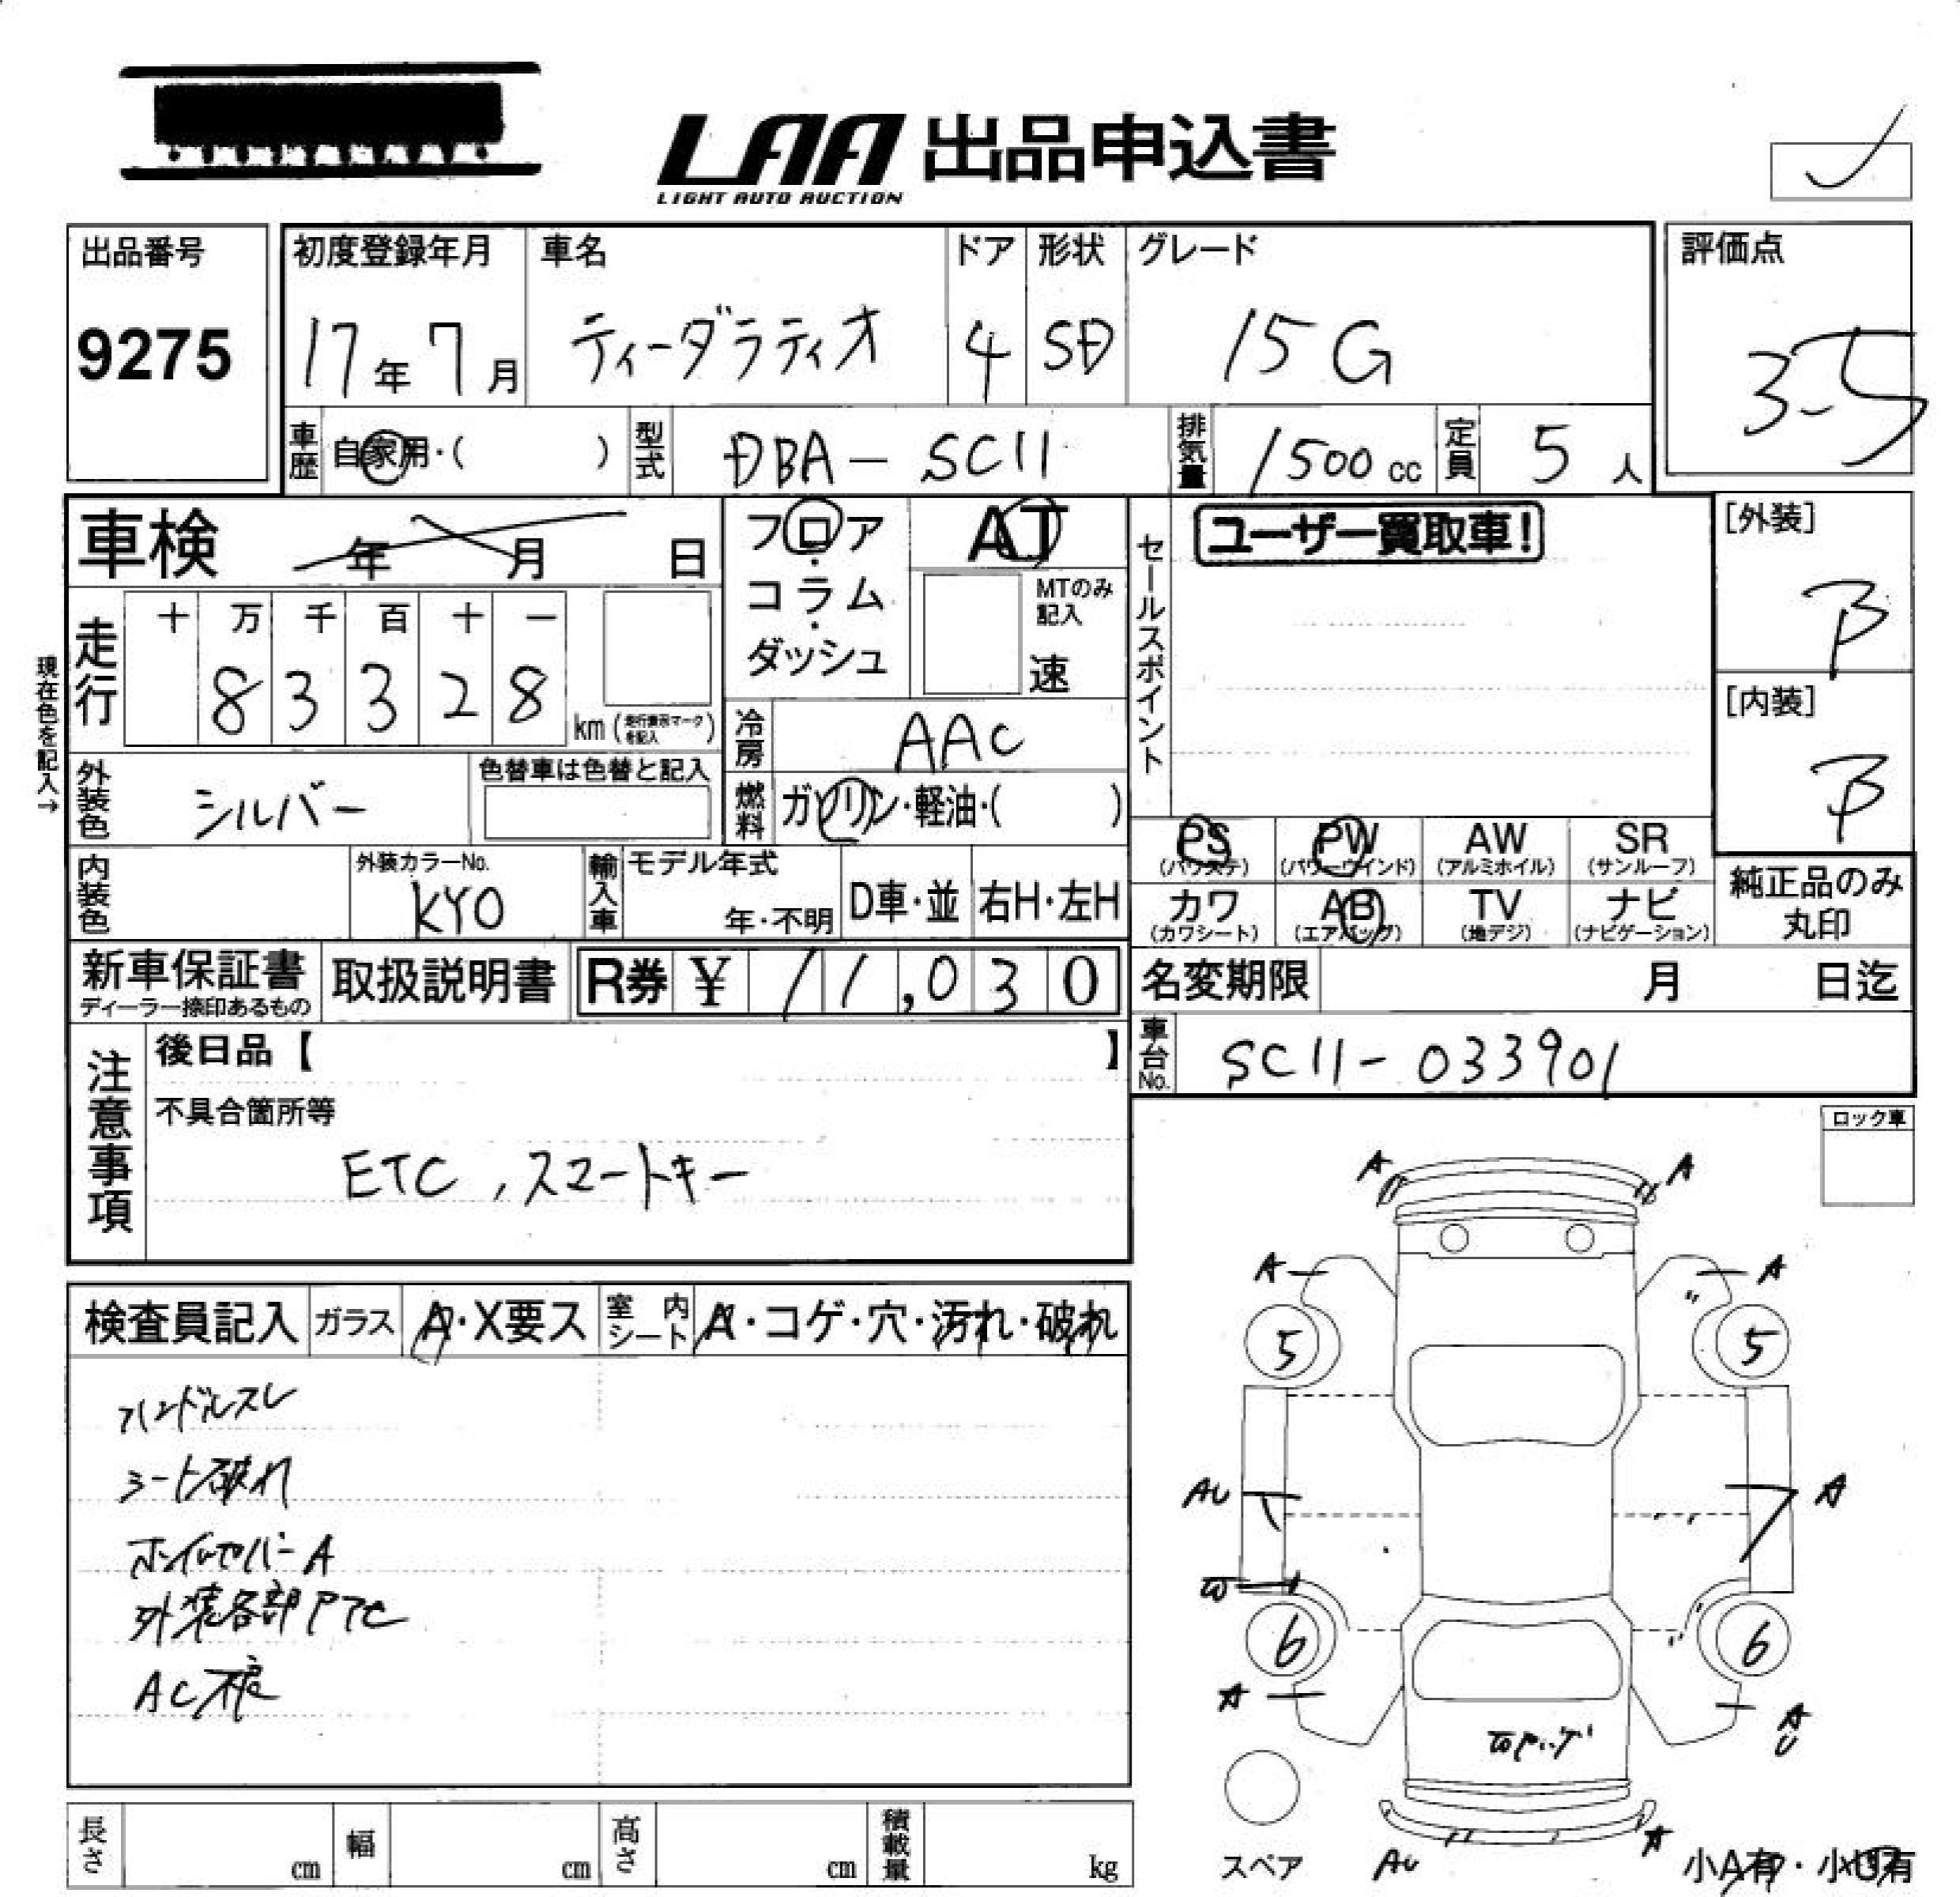 LAA 出品申込書
LIGHT AUTO AUCTION
出品番号
9275
初度登録年月
17年7月
車名
ティーダラティオ
ドア
4
形状
SD
グレード
15G
評価点
3-5
車歴
自家用・( )
型式
DBA-SC11
排気量
1500cc
定員
5人
車検
年 月 日
フロア・コラム・ダッシュ
AT
MTのみ記入
速
セールスポイント
ユーザー買取車!
[外装]
B
[内装]
B
現在色を記入→
走行
十 万 千 百 十 一
8 3 3 2 8
km(走行表示マークを記入)
冷房
AAC
外装色
シルバー
色替車は色替と記入
燃料
ガソリン・軽油・( )
PS
(パワステ)
PW
(パワーウインド)
AW
(アルミホイル)
SR
(サンルーフ)
カワ
(カワシート)
AB
(エアバッグ)
TV
(地デジ)
ナビ
(ナビゲーション)
純正品のみ丸印
内装色
外装カラーNo.
KY0
輸入車
モデル年式
年・不明
D車・並
右H・左H
新車保証書
ディーラー捺印あるもの
取扱説明書
R券 ¥ 11,030
名変期限 月 日迄
車台No.
SC11-033901
注意事項
後日品【 】
不具合箇所等
ETC,スマートキー
ロック車
検査員記入
ガラス
A・X要ス
室内シート
A・コゲ・穴・汚れ・破れ
ハンドルスレ
シート破れ
ホイルカバーA
外装各部
AC不良
A A
A A
5 5
AU A
W
6 6
A AU
スペア
AU A
小A有・小U有
長さ cm
幅 cm
高さ cm
積載量 kg